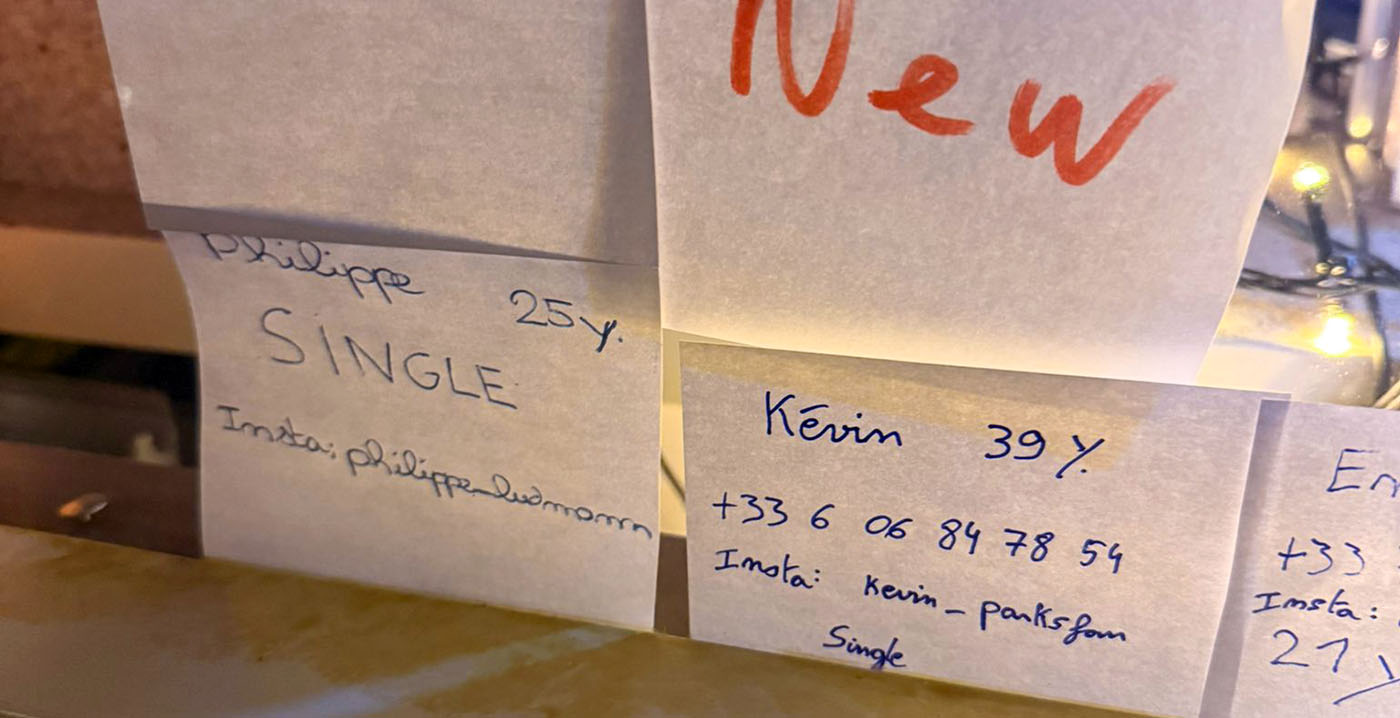 New
Philippe 25y.
SINGLE
Insta: philippe_ludmann
Kévin 39 y.
+33 6 06 84 78 54
Insta: Kevin_parksfan
Single
+33
Insta:
21 y